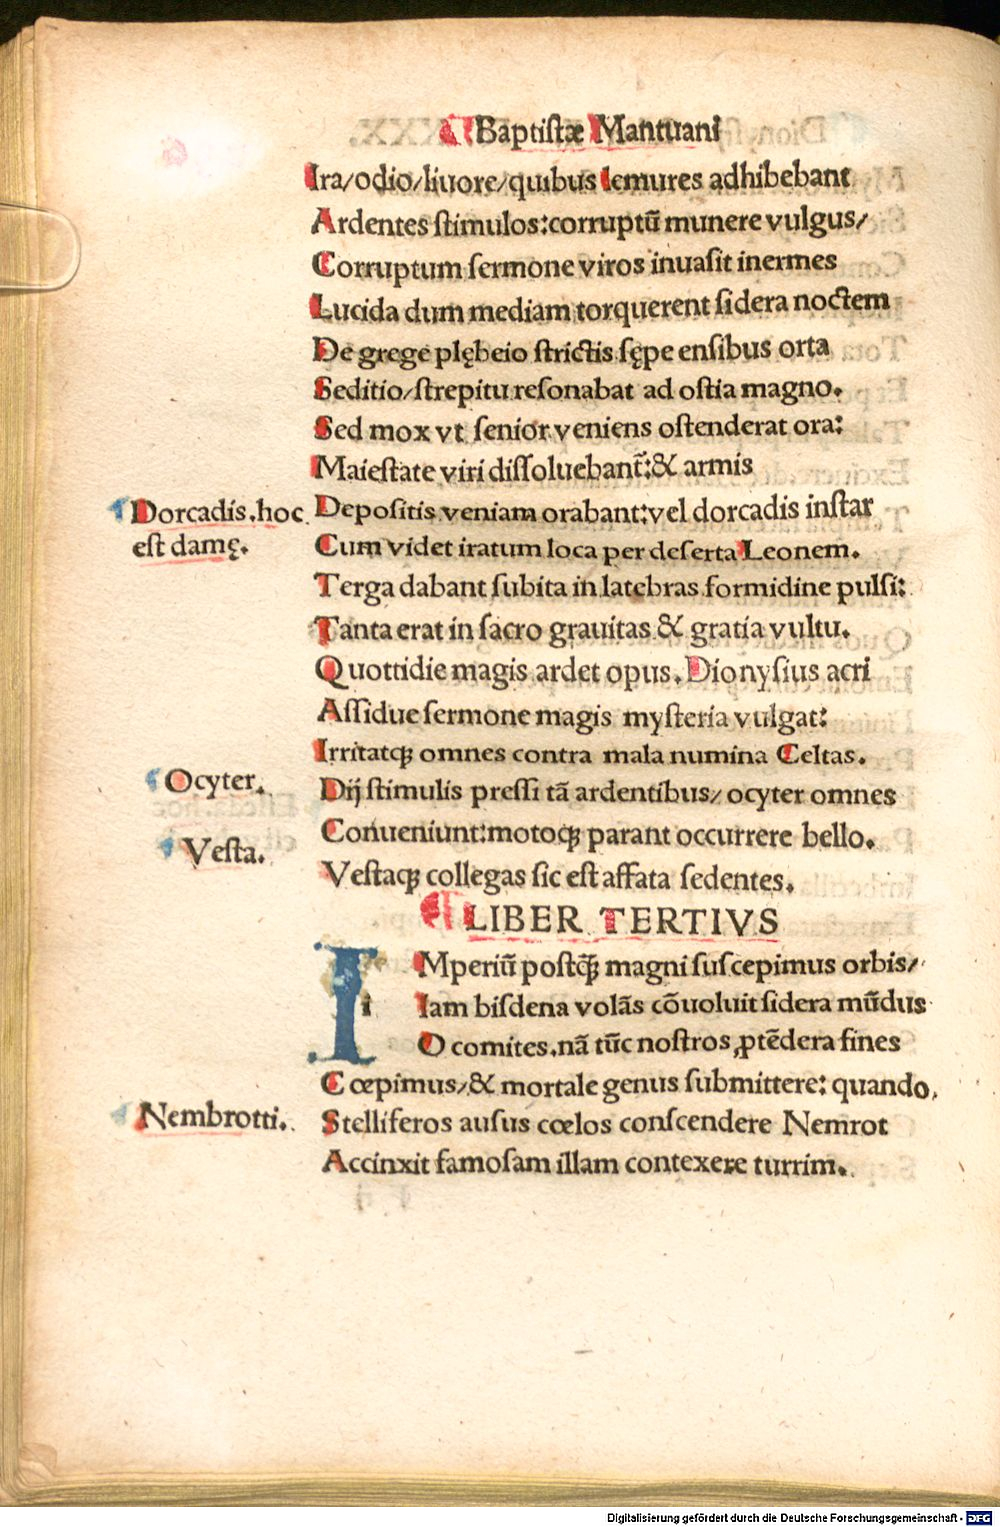 ¶ Baptistæ Mantuani
Ira/odio/liuore/quibus lemures adhibebant
Ardentes ſtimulos:corruptū munere vulgus/
Corruptum ſermone viros inuaſit inermes
Lucida dum mediam torquerent ſidera noctem
De grege plębeio ſtrictis ſępe enſibus orta
Seditio/ſtrepitu reſonabat ad oſtia magno.
Sed mox vt ſenior veniens oſtenderat ora:
Maieſtate viri diſſoluebant̃:& armis
Dorcadis.hoc
eſt damę.
Depoſitis veniam orabant:vel dorcadis inſtar
Cum videt iratum loca per deſerta Leonem.
Terga dabant ſubita in latebras formidine pulſi:
Tanta erat in ſacro grauitas & gratia vultu.
Quottidie magis ardet opus.Dionyſius acri
Aſſidue ſermone magis myſteria vulgat:
Irritatqꝫ omnes contra mala numina Celtas.
Ocyter.
Dij ſtimulis preſſi tā ardentibus/ocyter omnes
Conueniunt:motoqꝫ parant occurrere bello.
Vesta.
Veſtaqꝫ collegas sic eſt affata ſedentes.
¶ LIBER TERTIVS
I
i
Mperiū poſtqꝫ̃ magni ſuſcepimus orbis/
Iam biſdena volās cōuoluit ſidera mūdus
O comites.nā tūc noſtros ꝓtēdera fines
Cœpimus/& mortale genus ſubmittere: quando
Nembrotti.
Stelliferos auſus cœlos conſcendere Nemrot
Accinxit famoſam illam contexere turrim.
Digitalisierung gefördert durch die Deutsche Forschungsgemeinschaft - DFG